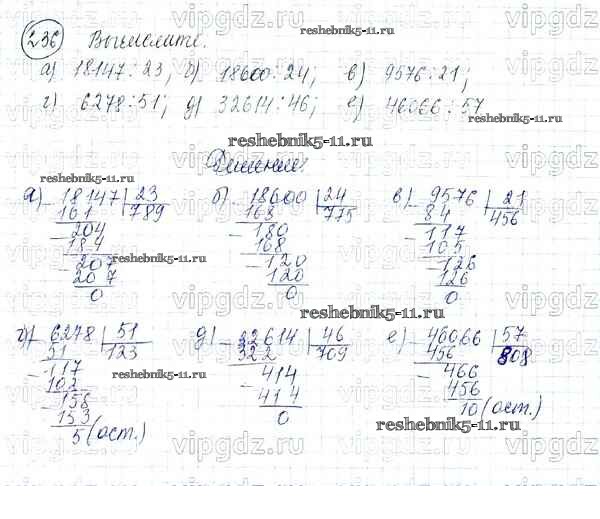 236 Вычислите.
а) 18147:23; б) 18600:24; в) 9576:21;
г) 6278:51; д) 32614:46; е) 46066:57
reshebnik5-11.ru
Решение:
а) 18147 | 23 б) 18600 | 24 в) 9576 | 21
161 | 789 168 | 775 84 | 456
204 180 117
184 168 105
207 120 126
207 120 126
0 0 0
г) 6278 | 51 д) 32614 | 46 е) 46066 | 57
51 | 123 322 | 709 456 | 808
117 414 466
102 414 456
158 0 10 (ост.)
153
5 (ост.)
reshebnik5-11.ru
vipgdz.ru